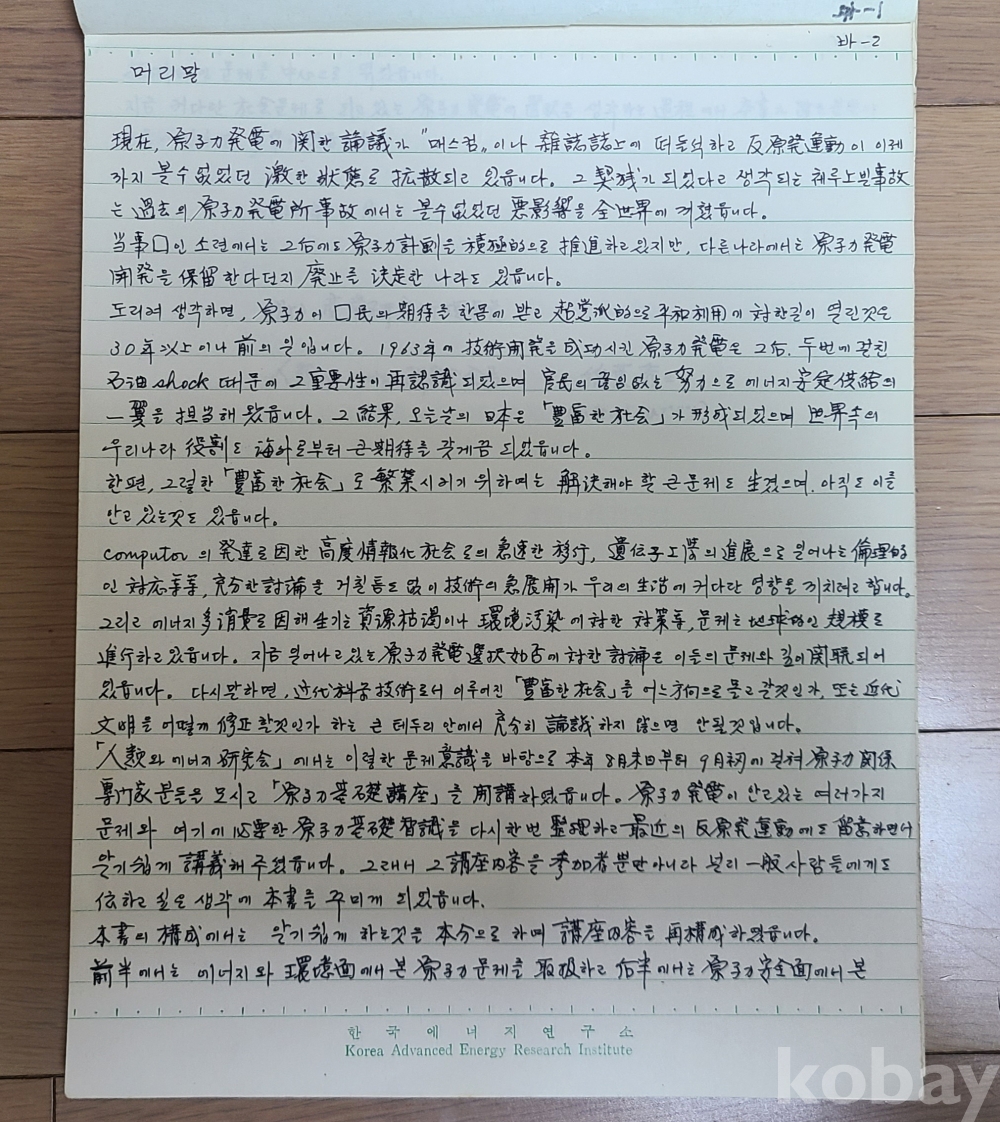 바-2
머리말
現在, 原子力発電에 関한 論議가 "매스컴"이나 雜誌誌上에 떠들석하고 反原発運動이 이제
까지 볼수 없었던 激한 狀態로 拡散되고 있읍니다. 그 契機가 되었다고 생각되는 체루노빌事故
는 過去의 原子力発電所事故에서는 볼수 없었던 悪影響을 全世界에 끼쳤읍니다.
当事囗인 소련에서는 그后에도 原子力計劃을 積極的으로 推進하고 있지만, 다른나라에서는 原子力発電
開発을 保留한다던지 廃止를 決定한 나라도 있읍니다.
도리켜 생각하면, 原子力이 囗民의 期待를 한몸에 받고 超党派的으로 平和利用에 対한길이 열린것은
30年以上이나 前의 일입니다. 1963年에 技術開発을 成功시킨 原子力発電은 그后, 두번에 걸친
石油 shock 때문에 그 重要性이 再認識되었으며 官民의 끊임없는 努力으로 에너지安定供給의
一翼을 担当해 왔읍니다. 그 結果, 오늘날의 日本은 「豊富한 社会」가 形成되었으며 世界속의
우리나라 役割도 海外로부터 큰 期待를 갖게끔 되었읍니다.
한편, 그럴한 「豊富한 社会」로 繁栄시키기 위하여는 解決해야 할 큰 문제도 생겼으며, 아직도 이를
안고 있는것도 있읍니다.
computor의 発達로 因한 高度情報化 社会로의 急速한 移行, 遺伝子工学의 進展으로 일어나는 倫理的
인 対応等等, 充分한 討論을 거칠 틈도 없이 技術의 急展開가 우리의 生活에 커다란 영향을 끼치려고 합니다.
그리고 에너지 多消費로 因해 생기는 資源枯渇이나 環境汚染에 対한 対策等, 문제는 地球的인 規模로
進行하고 있읍니다. 지금 일어나고 있는 原子力発電選択如否에 対한 討論은 이들의 문제와 깊이 関聯되어
있읍니다. 다시말하면, 近代科学技術로서 이루어진 「豊富한 社会」를 어느方向으로 몰고 갈것인가, 또는 近代
文明을 어떻게 修正할것인가 하는 큰 테두리 안에서 充分히 論議하지 않으면 안될것입니다.
「人類와 에너지 研究会」에서는 이럴한 문제意識을 바탕으로 本年 8月末日부터 9月初에 걸쳐 原子力関係
専門家분들을 모시고 「原子力基礎講座」를 開講하였읍니다. 原子力発電이 안고있는 여러가지
문제와 여기에 必要한 原子力基礎智識을 다시한번 整理하고 最近의 反原発運動에도 留意하면서
알기쉽게 講義해 주셨읍니다. 그래서 그 講座内容을 参加者뿐만아니라 널리 一般사람들에게도
伝하고 싶은 생각에 本書를 꾸미게 되었읍니다.
本書의 構成에서는 알기쉽게 하는것을 本分으로 하며 講座内容을 再構成하였읍니다.
前半에서는 에너지와 環境面에서 본 原子力문제를 取扱하고 后半에서는 原子力安全面에서 본
한국에너지연구소
Korea Advanced Energy Research Institute
kobay